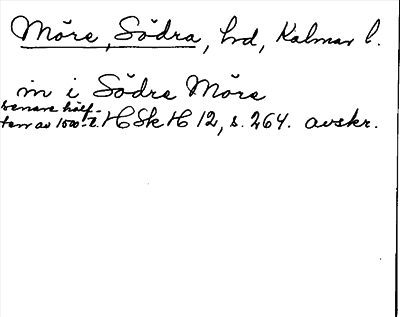 Möre, Södra, hd, Kalmar l.
in i Södre Möre
senare hälf-
ten av 1500-t. HSkH 12, s. 264. avskr.